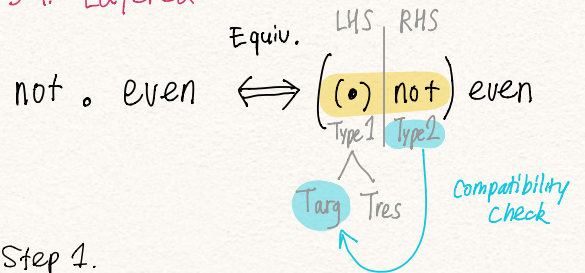 Layered
LHS RHS
Equiv.
not . even ⟺ ((•) not) even
Type1 Type2
Targ Tres
Compatibility
Check
Step 1.